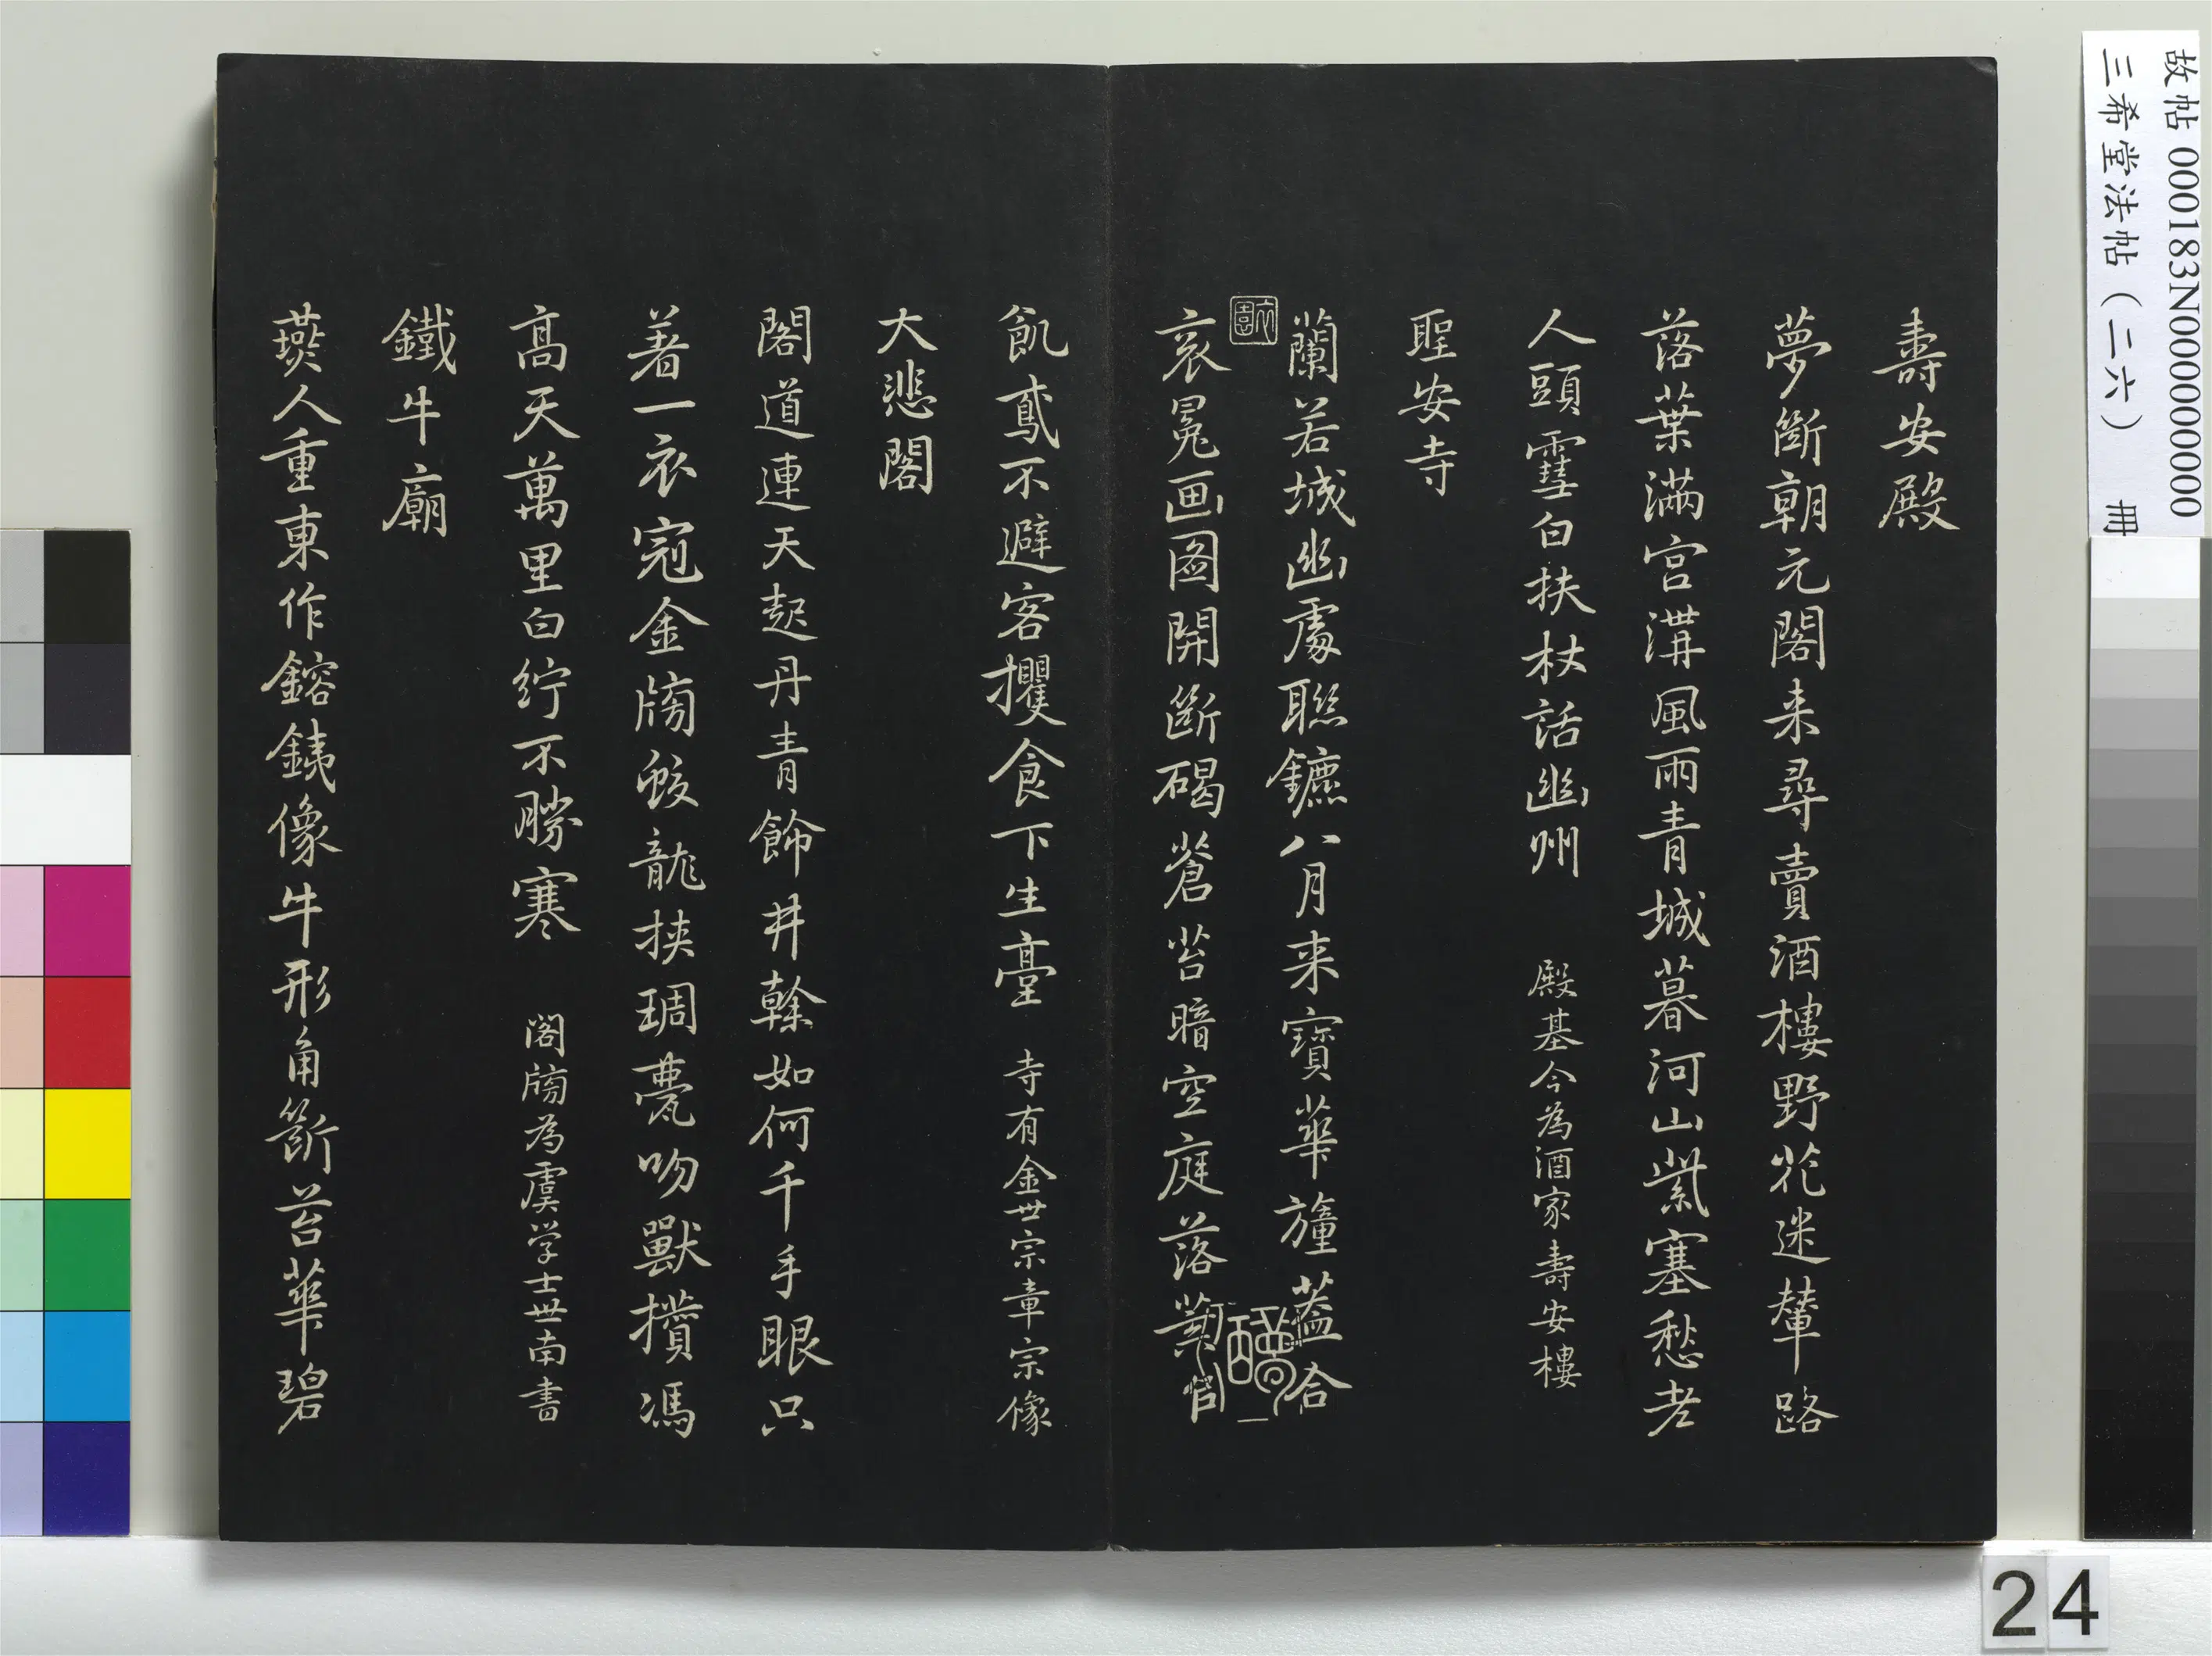 壽安殿
夢斷朝元閣来尋賣酒樓野花迷輦路
落葉滿宮溝風雨青城暮河山紫塞愁老
人頭雪白扶杖話幽州 殿基今為酒家壽安樓
聖安寺
蘭若城幽處聯鑣八月来寶華旛蓋合
衮冕画圖開斷碣蒼苔暗空庭落葉
飢鳶不避客攫食下生臺 寺有金世宗章宗像
大悲閣
閣道連天起丹青飾井榦如何千手眼只
著一衣冠金牓蛟龍挾琱甍吻獸攢馮
高天萬里白紵不勝寒 閣牓為虞学士世南書
鐵牛廟
燕人重東作鎔銕像牛形角斷苔華碧
故帖000183N000000000
三希堂法帖(二六) 冊
24